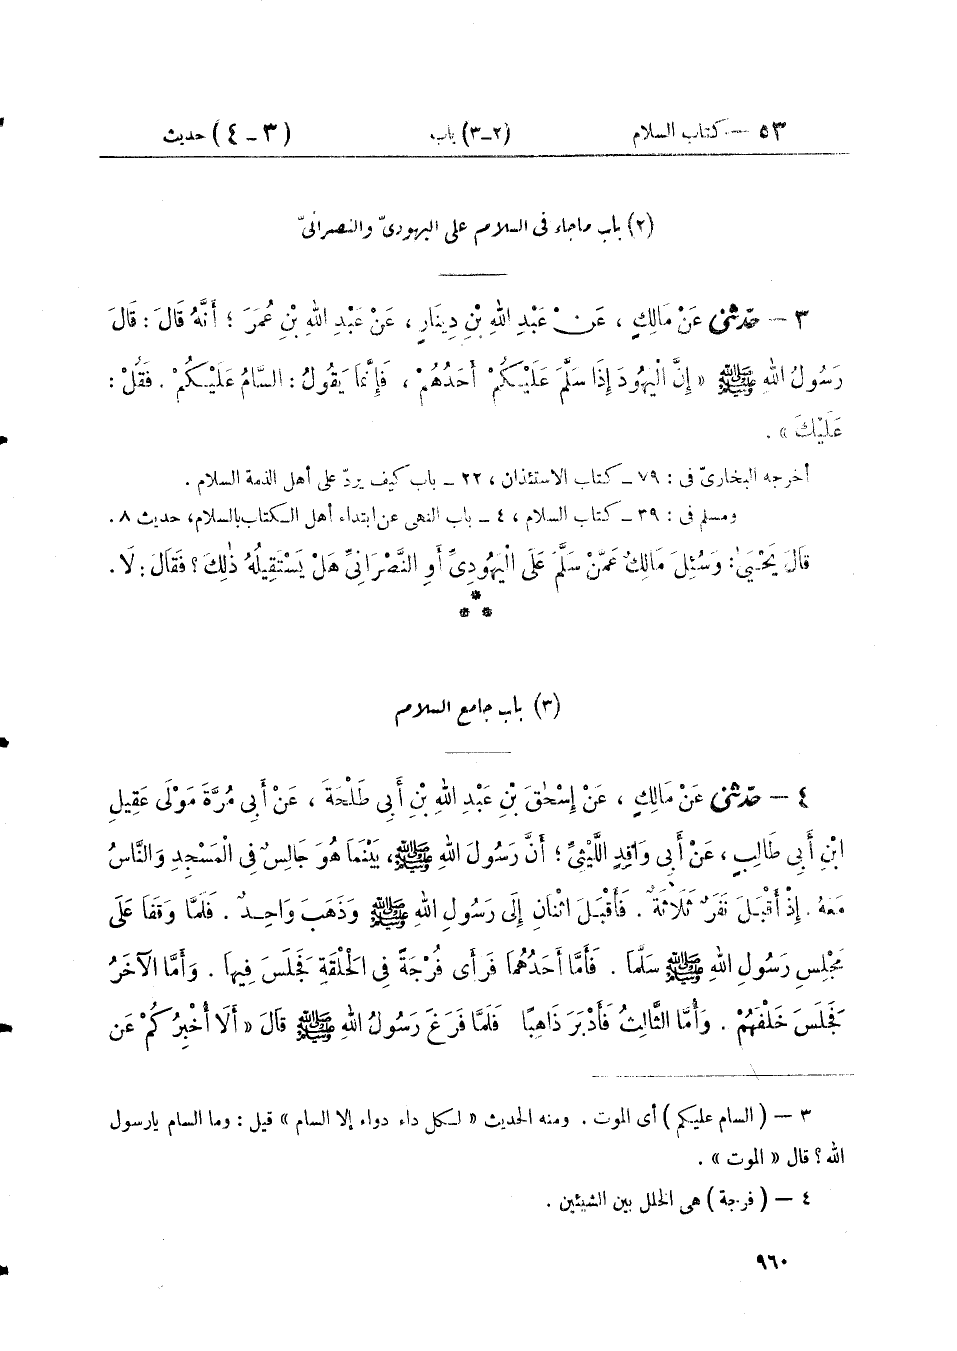 ٥٣ – كتاب السلام (٢-٣) باب (٣ – ٤) حديث
(٢) باب ماجاء فى السلام على اليهودىّ والنصرانىّ
٣ – حَدّثنى عَنْ مَالِكٍ ، عَنْ عَبْدِ اللهِ بْنِ دِينَارٍ ، عَنْ عَبْدِ اللهِ بْنِ عُمَرَ ؛ أَنَّهُ قَالَ : قَالَ
رَسُولُ اللهِ ﷺ « إِنَّ الْيَهُودَ إِذَا سَلَّمَ عَلَيْكُمْ أَحَدُهُمْ ، فَإِنَّمَا يَقُولُ : السَّامُ عَلَيْكُمْ . فَقُلْ :
عَلَيْكَ » .
أخرجه البخارىّ فى : ٧٩ – كتاب الاستئذان ، ٢٢ – باب كيف يردّ على أهل الذمة السلام .
ومسلم فى : ٣٩ – كتاب السلام ، ٤ – باب النهى عن ابتداء أهل الكتاب بالسلام ، حديث ٨ .
قَالَ يَحْيَىٰ : وَسُئِلَ مَالِكٌ عَمَّنْ سَلَّمَ عَلَى الْيَهُودِىِّ أَوِ النَّصْرَانِىِّ هَلْ يَسْتَقِيلُهُ ذٰلِكَ ؟ فَقَالَ : لَا .
*
* *
(٣) باب جامع السلام
٤ – حَدّثنى عَنْ مَالِكٍ ، عَنْ إِسْحٰقَ بْنِ عَبْدِ اللهِ بْنِ أَبِى طَلْحَةَ ، عَنْ أَبِى مُرَّةَ مَوْلَى عَقِيلِ
ابْنِ أَبِى طَالِبٍ ، عَنْ أَبِى وَاقِدٍ اللَّيْثِىِّ ؛ أَنَّ رَسُولَ اللهِ ﷺ ، بَيْنَمَا هُوَ جَالِسٌ فِى الْمَسْجِدِ وَالنَّاسُ
مَعَهُ . إِذْ أَقْبَلَ نَفَرٌ ثَلَاثَةٌ . فَأَقْبَلَ اثْنَانِ إِلَى رَسُولِ اللهِ ﷺ وَذَهَبَ وَاحِدٌ . فَلَمَّا وَقَفَا عَلَى
مَجْلِسِ رَسُولِ اللهِ ﷺ سَلَّمَا . فَأَمَّا أَحَدُهُمَا فَرَأَى فُرْجَةً فِى الْحَلْقَةِ فَجَلَسَ فِيهَا . وَأَمَّا الْآخَرُ
فَجَلَسَ خَلْفَهُمْ . وَأَمَّا الثَّالِثُ فَأَدْبَرَ ذَاهِبًا فَلَمَّا فَرَغَ رَسُولُ اللهِ ﷺ قَالَ « أَلَا أُخْبِرُكُمْ عَنِ
٣ – ( السام عليكم ) أى الموت . ومنه الحديث « لكل داء دواء إلا السام » قيل : وما السام يارسول
الله ؟ قال « الموت » .
٤ – ( فرجة ) هى الخلل بين الشيئين .
٩٦٠